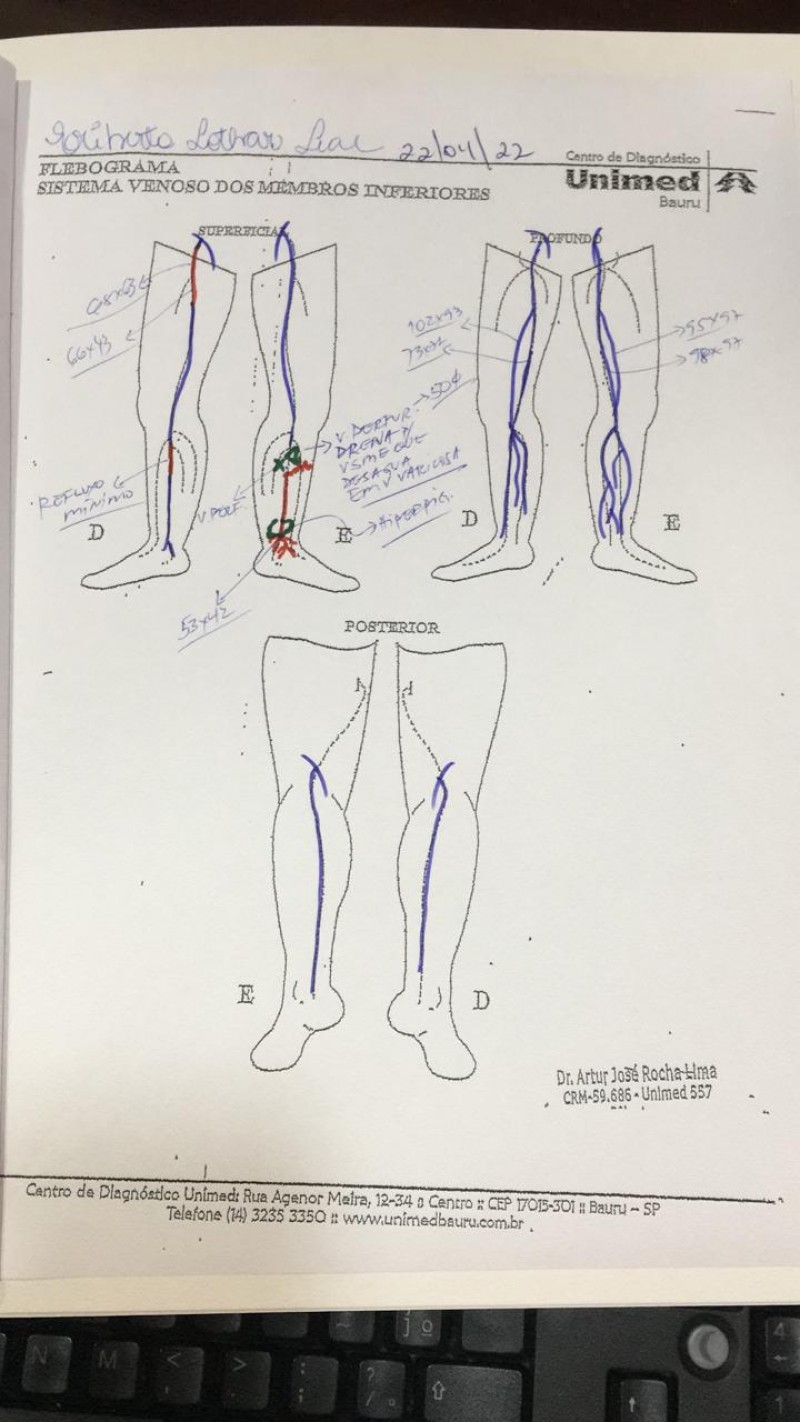 22/04/22
Centro de Diagnóstico
Unimed
Bauru
FLEBOGRAMA
SISTEMA VENOSO DOS MEMBROS INFERIORES
SUPERFICIAL
PROFUNDO
66x43
102x93
95x97
98x97
50%
V. PERFUR.
DRENA P/
VSME QUE
DESAGUA
EM V VARICOSA
REFLUXO
MÍNIMO
D
E
D
E
53x42
POSTERIOR
E
D
Dr. Artur José Rocha Lima
CRM-59.686 - Unimed 557
Centro de Diagnóstico Unimed: Rua Agenor Meira, 12-34 :: Centro :: CEP 17015-301 :: Bauru - SP
Telefone (14) 3235 3350 :: www.unimedbauru.com.br